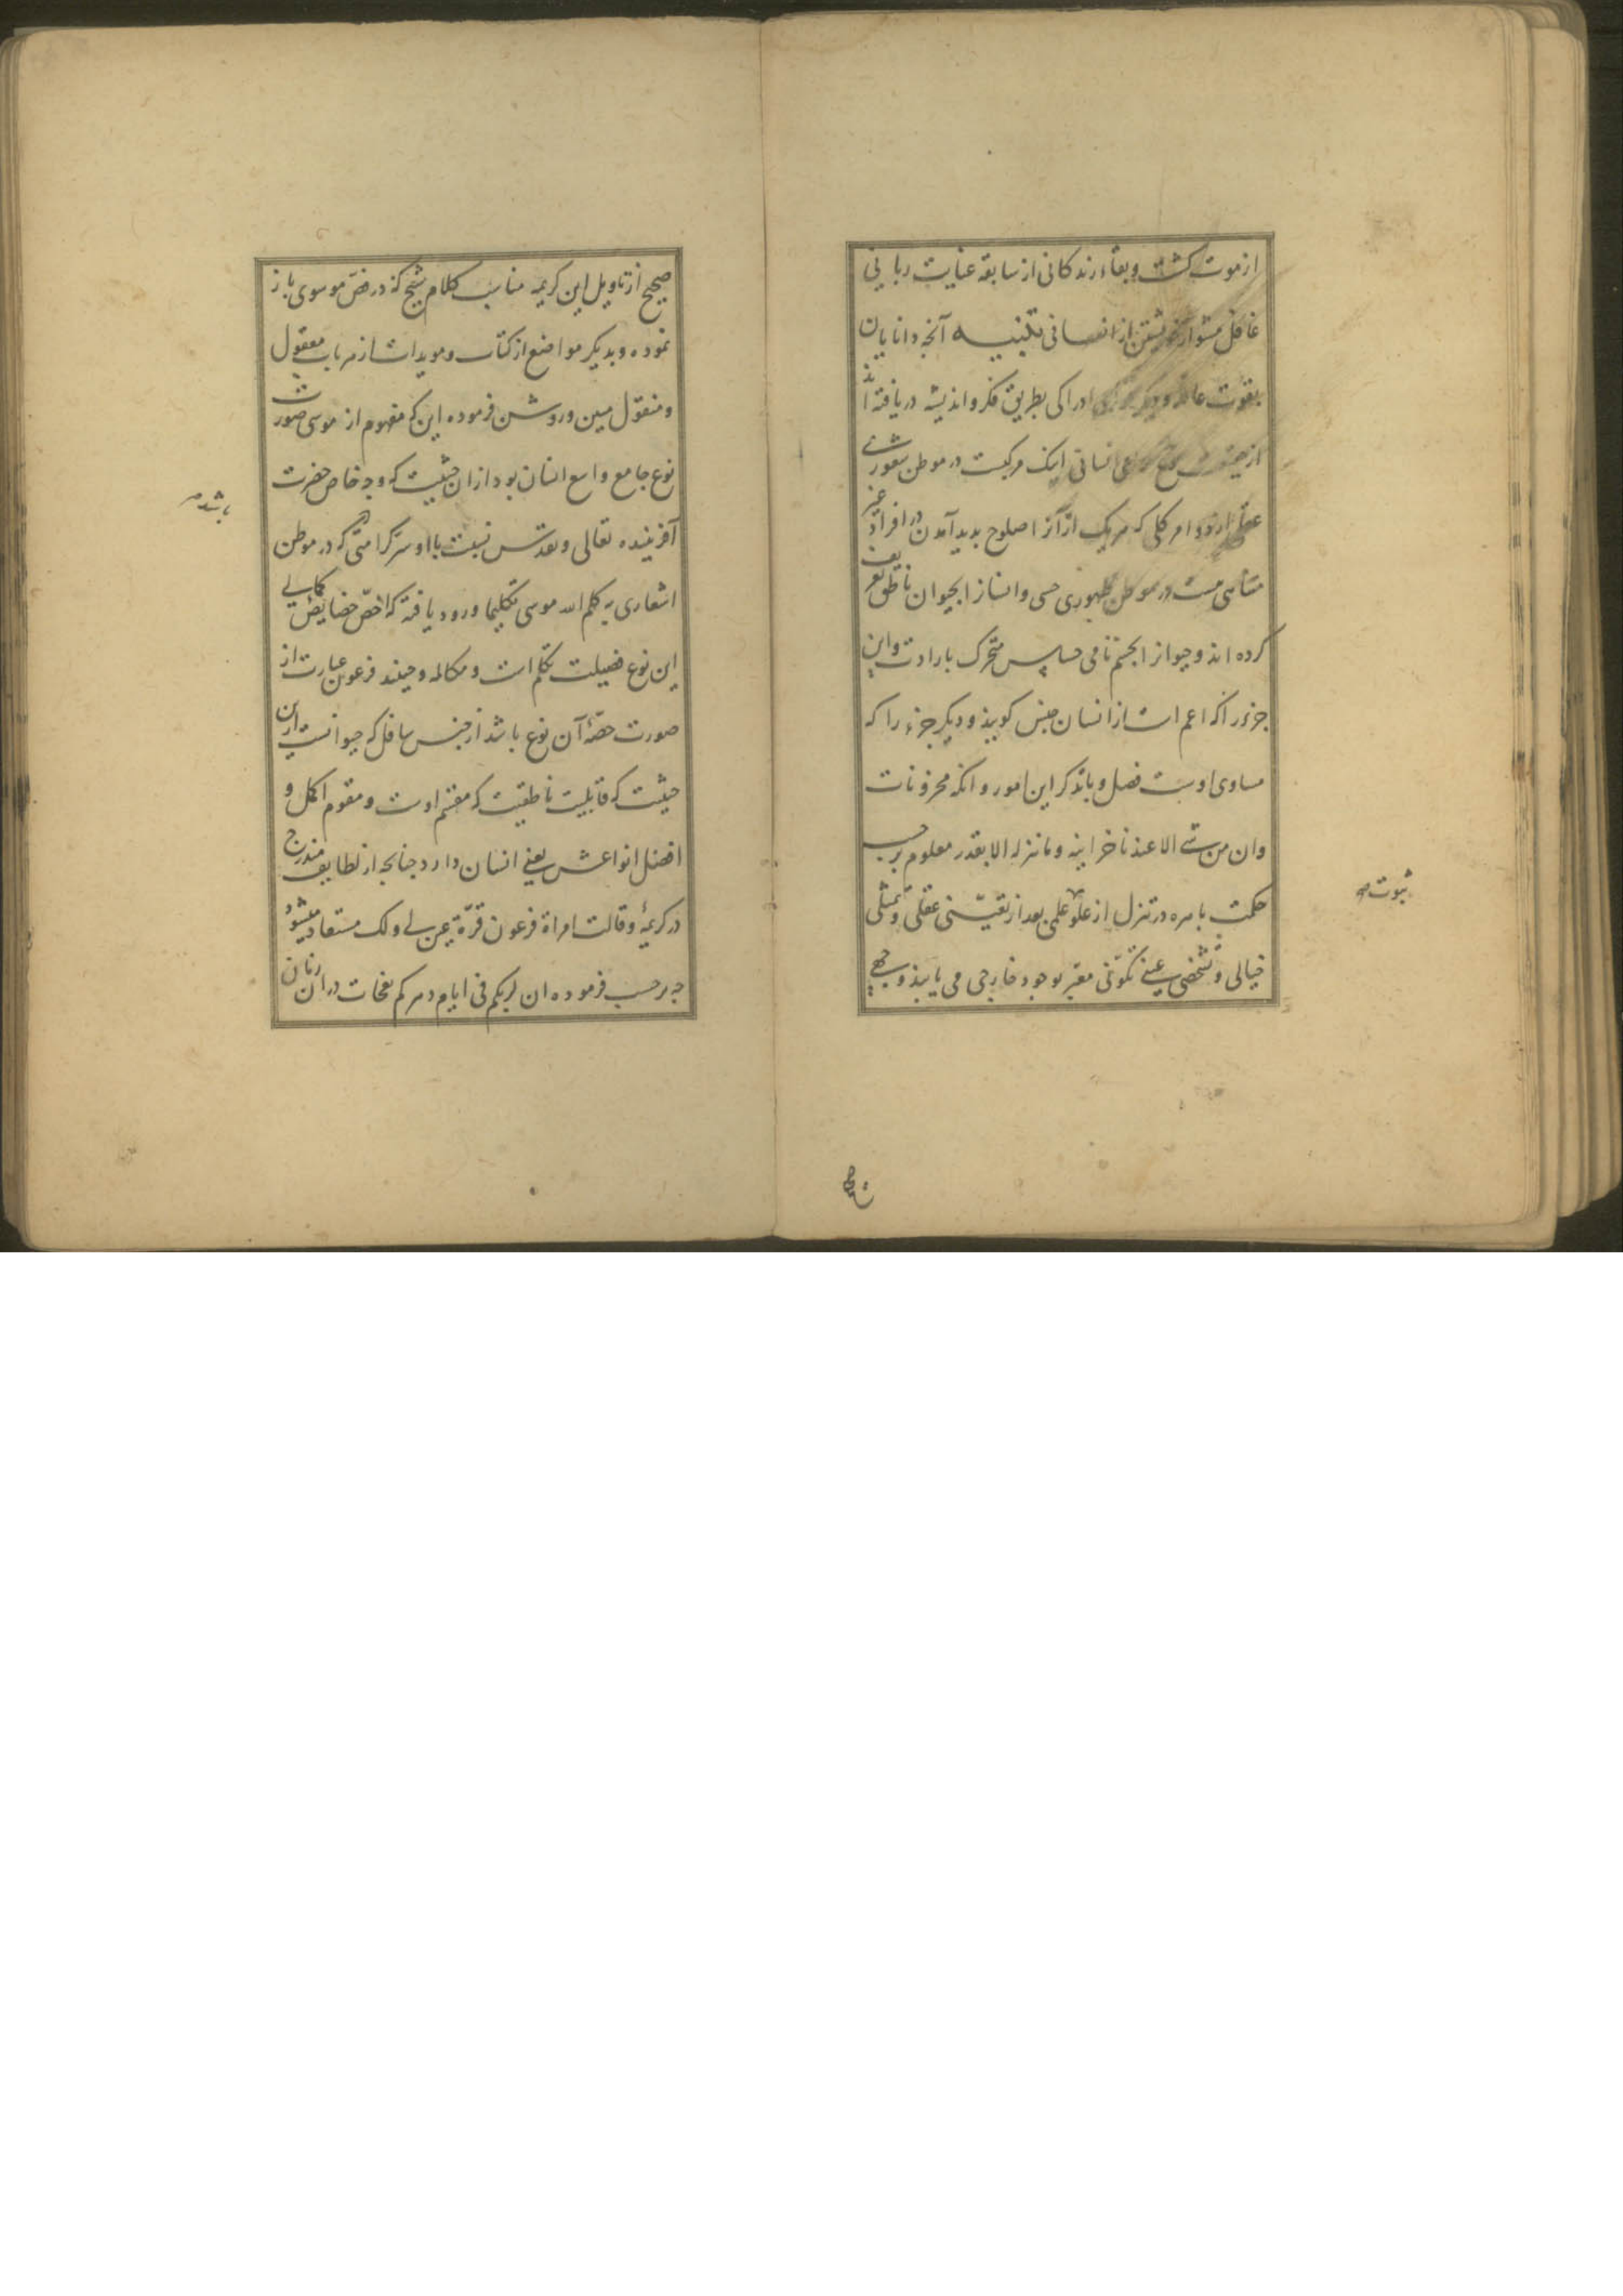 از موت کشته و بقاء زندکانی از سابقه عنایت ربانی
غافل مشو از انفسانی تکنیسه آنجه دانایان
بقوت ادراکی بطریق فکر و اندیشه دریافته اند
انسانی اینک مرکبست در موطن شعوری
عقلی از دو امر کلی که هریک از آنرا صلوح بدید آمدن در افراد غیر
متناهی هست در موطن ظهوری حسی و انسانرا بحیوان ناطق تعریف
کرده اند و حیوانرا بجسم نامی حساس متحرک بارادت و این
جزو را که اعم است از انسان جنس کویند و دیکر جزء را که
مساوی اوست فصل و باتذکر این امور و آنکه مخزونات
وان من شئ الا عندنا خزاینه و ما ننزله الا بقدر معلوم برحسب
حکمت بامره در تنزل از علو علمی بعد از تعینی عقلی و تمثلی
خیالی و تشخصی عینی تکونی معبر بوجود خارجی می یابند وجهی
ثبوت صح
صحیح
صحیح از تاویل این کریمه مناسب کلام شیخ که در فص موسوی باز
نموده و بدیکر مواضع از کتاب و مویدات از هر باب معقول
و منقول مبین و روشن فرموده این که مفهوم از موسی صورت
نوع جامع واسع انسان بود از ان حیثیت که وجه خاص حضرت
آفریننده تعالی و تقدس نسبت با او سر کرامتی که در موطن
اشعاری به کلم الله موسی تکلیما ورود یافته که اخص خصایص کمالی
این نوع فضیلت تکلم است و مکالمه و حینئذ فرعون عبارت از
صورت حصهٔ آن نوع باشد از جنس سافل که حیوانست از این
حیثیت که قابلیت ناطقیت که مقسم اوست و مقوم اکمل و
افضل انواعش یعنی انسان دارد جنانجه از لطایف مندرج
در کریمهٔ و قالت امراة فرعون قرة عین لی و لک مستفاد میشود
جه برحسب فرموده ان لربکم فی ایام دهرکم نفحات در ان زنان
باشد صح